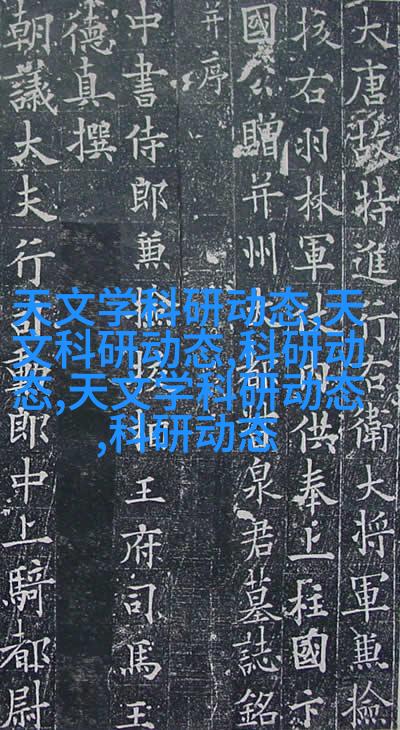 大唐故特進行右衛大將軍兼檢
校右羽林軍仗內供奉上柱國卞
國公贈并州大都督泉君墓誌銘
并序
中書侍郎兼檢校相王府司馬王
德真撰
朝議大夫行司勳郎中上騎都尉
天文学科研动态,天
文科研动态,科研动
态,天文学科研动态
,科研动态